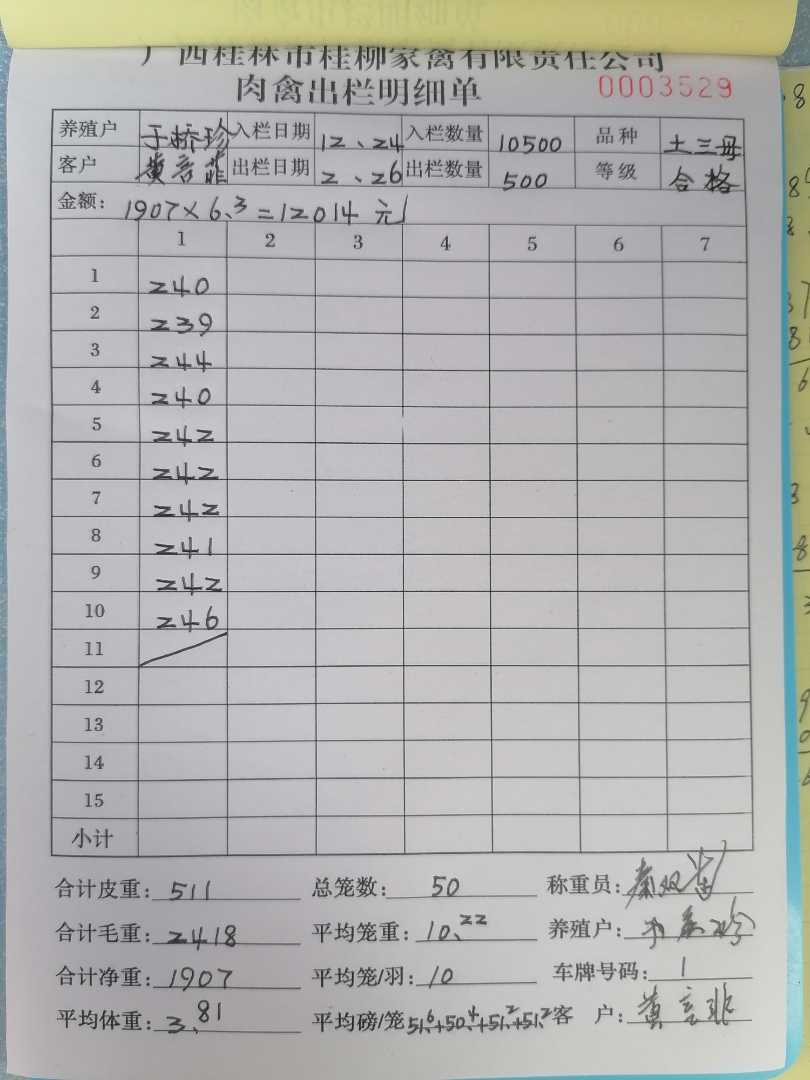 广西桂林市桂柳家禽有限责任公司
肉禽出栏明细单 0003529
养殖户 于桥珍 入栏日期 12、24 入栏数量 10500 品种 土三母
客户 黄言菲 出栏日期 2、26 出栏数量 500 等级 合格
金额: 1907×6.3=12014元
1 2 3 4 5 6 7
1 240
2 239
3 244
4 240
5 242
6 242
7 242
8 241
9 242
10 246
11
12
13
14
15
小计
合计皮重: 511 总笼数: 50 称重员:
合计毛重: 2418 平均笼重: 10.22 养殖户:
合计净重: 1907 平均笼/羽: 10 车牌号码: 1
平均体重: 3.81 平均磅/笼 51.6+50.4+51.2+51.2 客 户: 黄言菲